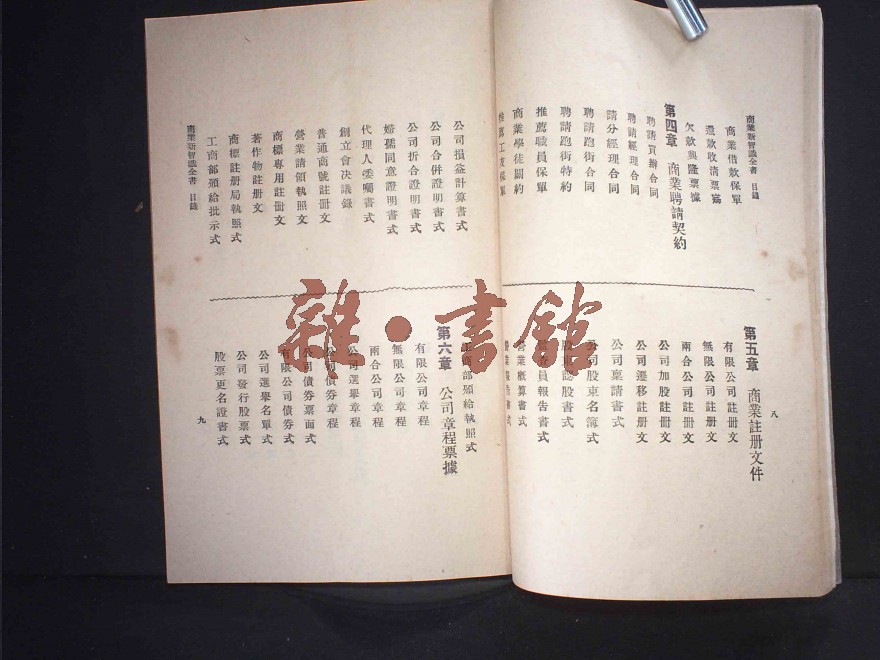 商業新智識全書 目錄
商業借款保單
還款收清票寫
欠款興隆票據
第四章 商業聘請契約
聘請買辦合同
聘請經理合同
請分經理合同
聘請跑街合同
聘請跑街特約
推薦職員保單
商業學徒關約
推薦工友保單
八
第五章 商業註冊文件
有限公司註冊文
無限公司註冊文
兩合公司註冊文
公司加股註冊文
公司遷移註冊文
公司稟請書式
公司股東名簿式
股東認股書式
員報告書式
營業概算書式
公司損益計算書式
公司合併證明書式
公司折合證明書式
婦孺同意證明書式
代理人委囑書式
創立會決議錄
普通商號註冊文
營業請領執照文
商標專用註冊文
著作物註冊文
商標註冊局執照式
工商部頒給批示式
商業新智識全書 目錄
工商部頒給執照式
第六章 公司章程票據
有限公司章程
無限公司章程
兩合公司章程
公司選舉章程
公司債券章程
公司債券票面式
有限公司債券式
公司選舉名單式
公司發行股票式
股票更名證書式
九
雜·書館